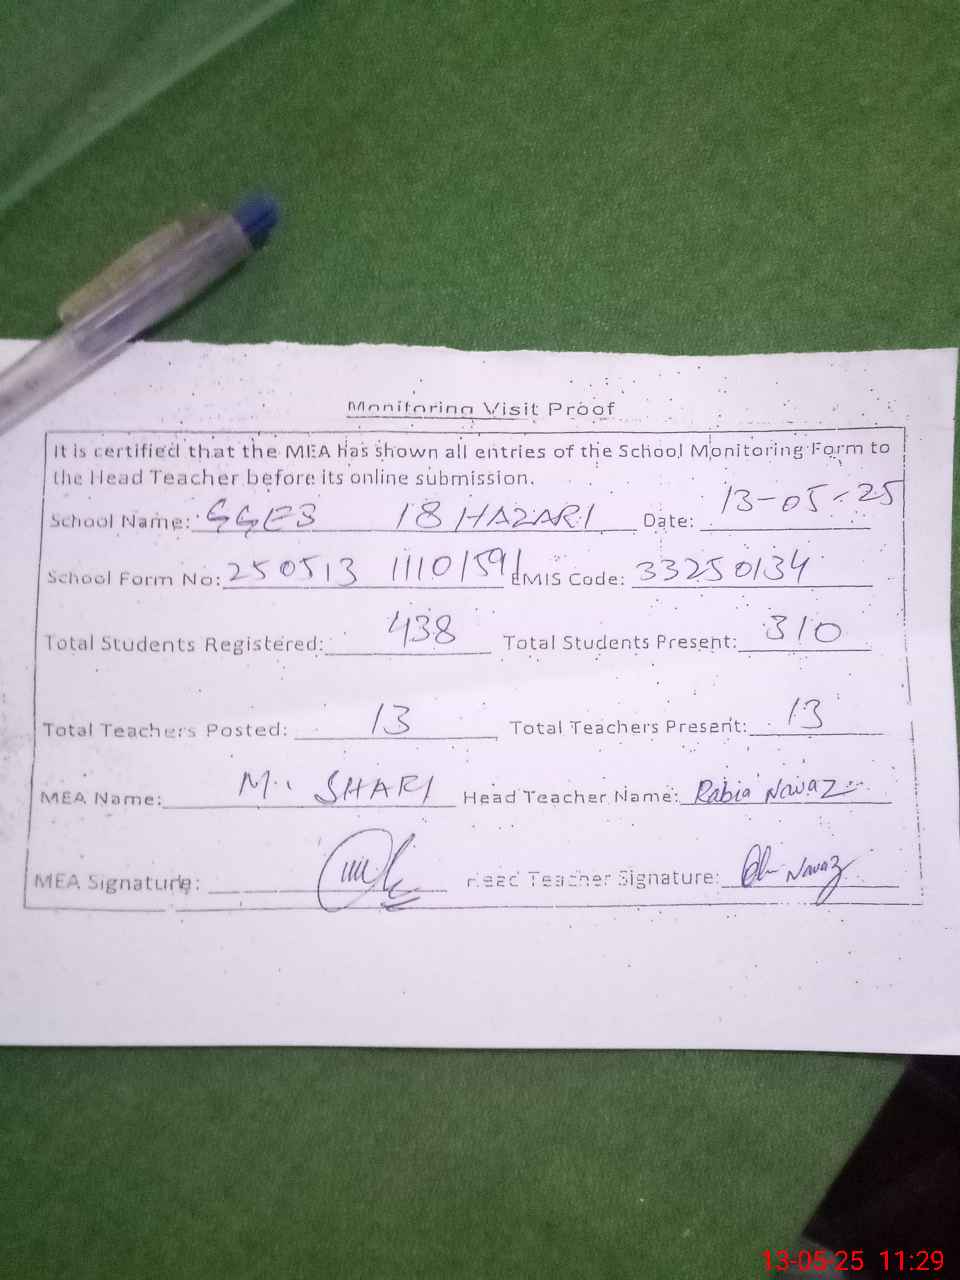 Monitoring Visit Proof
It is certified that the MEA has shown all entries of the School Monitoring Form to
the Head Teacher before its online submission.
School Name: GGES 18 HAZARI Date: 13-05-25
School Form No: 250513 11101591 EMIS Code: 33250134
Total Students Registered: 438 Total Students Present: 310
Total Teachers Posted: 13 Total Teachers Present: 13
MEA Name: M. SHARI Head Teacher Name: Rabia Nawaz
MEA Signature: Head Teacher Signature: Nawaz
13-05-25 11:29